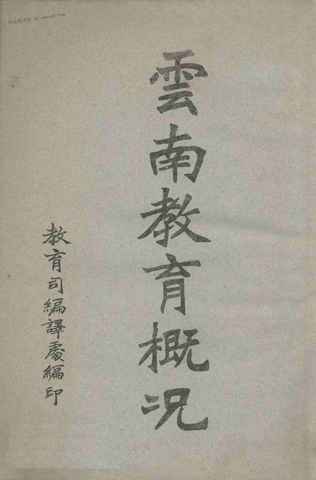 雲南教育概况
教育司編譯處編印